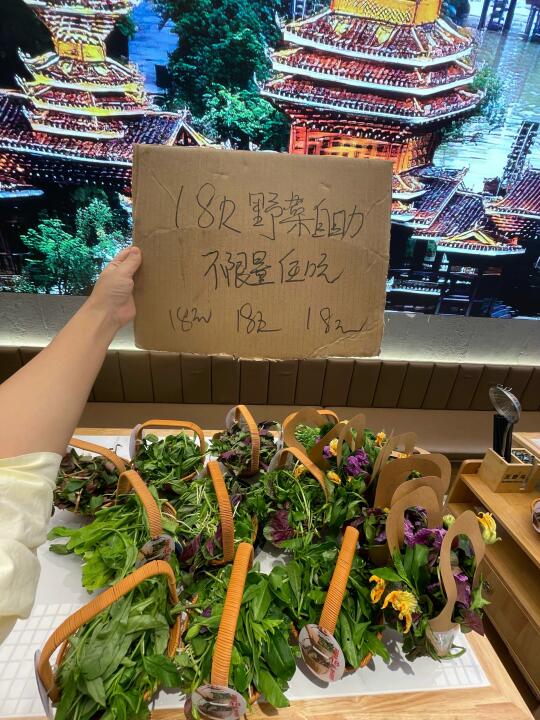 18元野菜自助
不限量任吃
18元 18元 18元